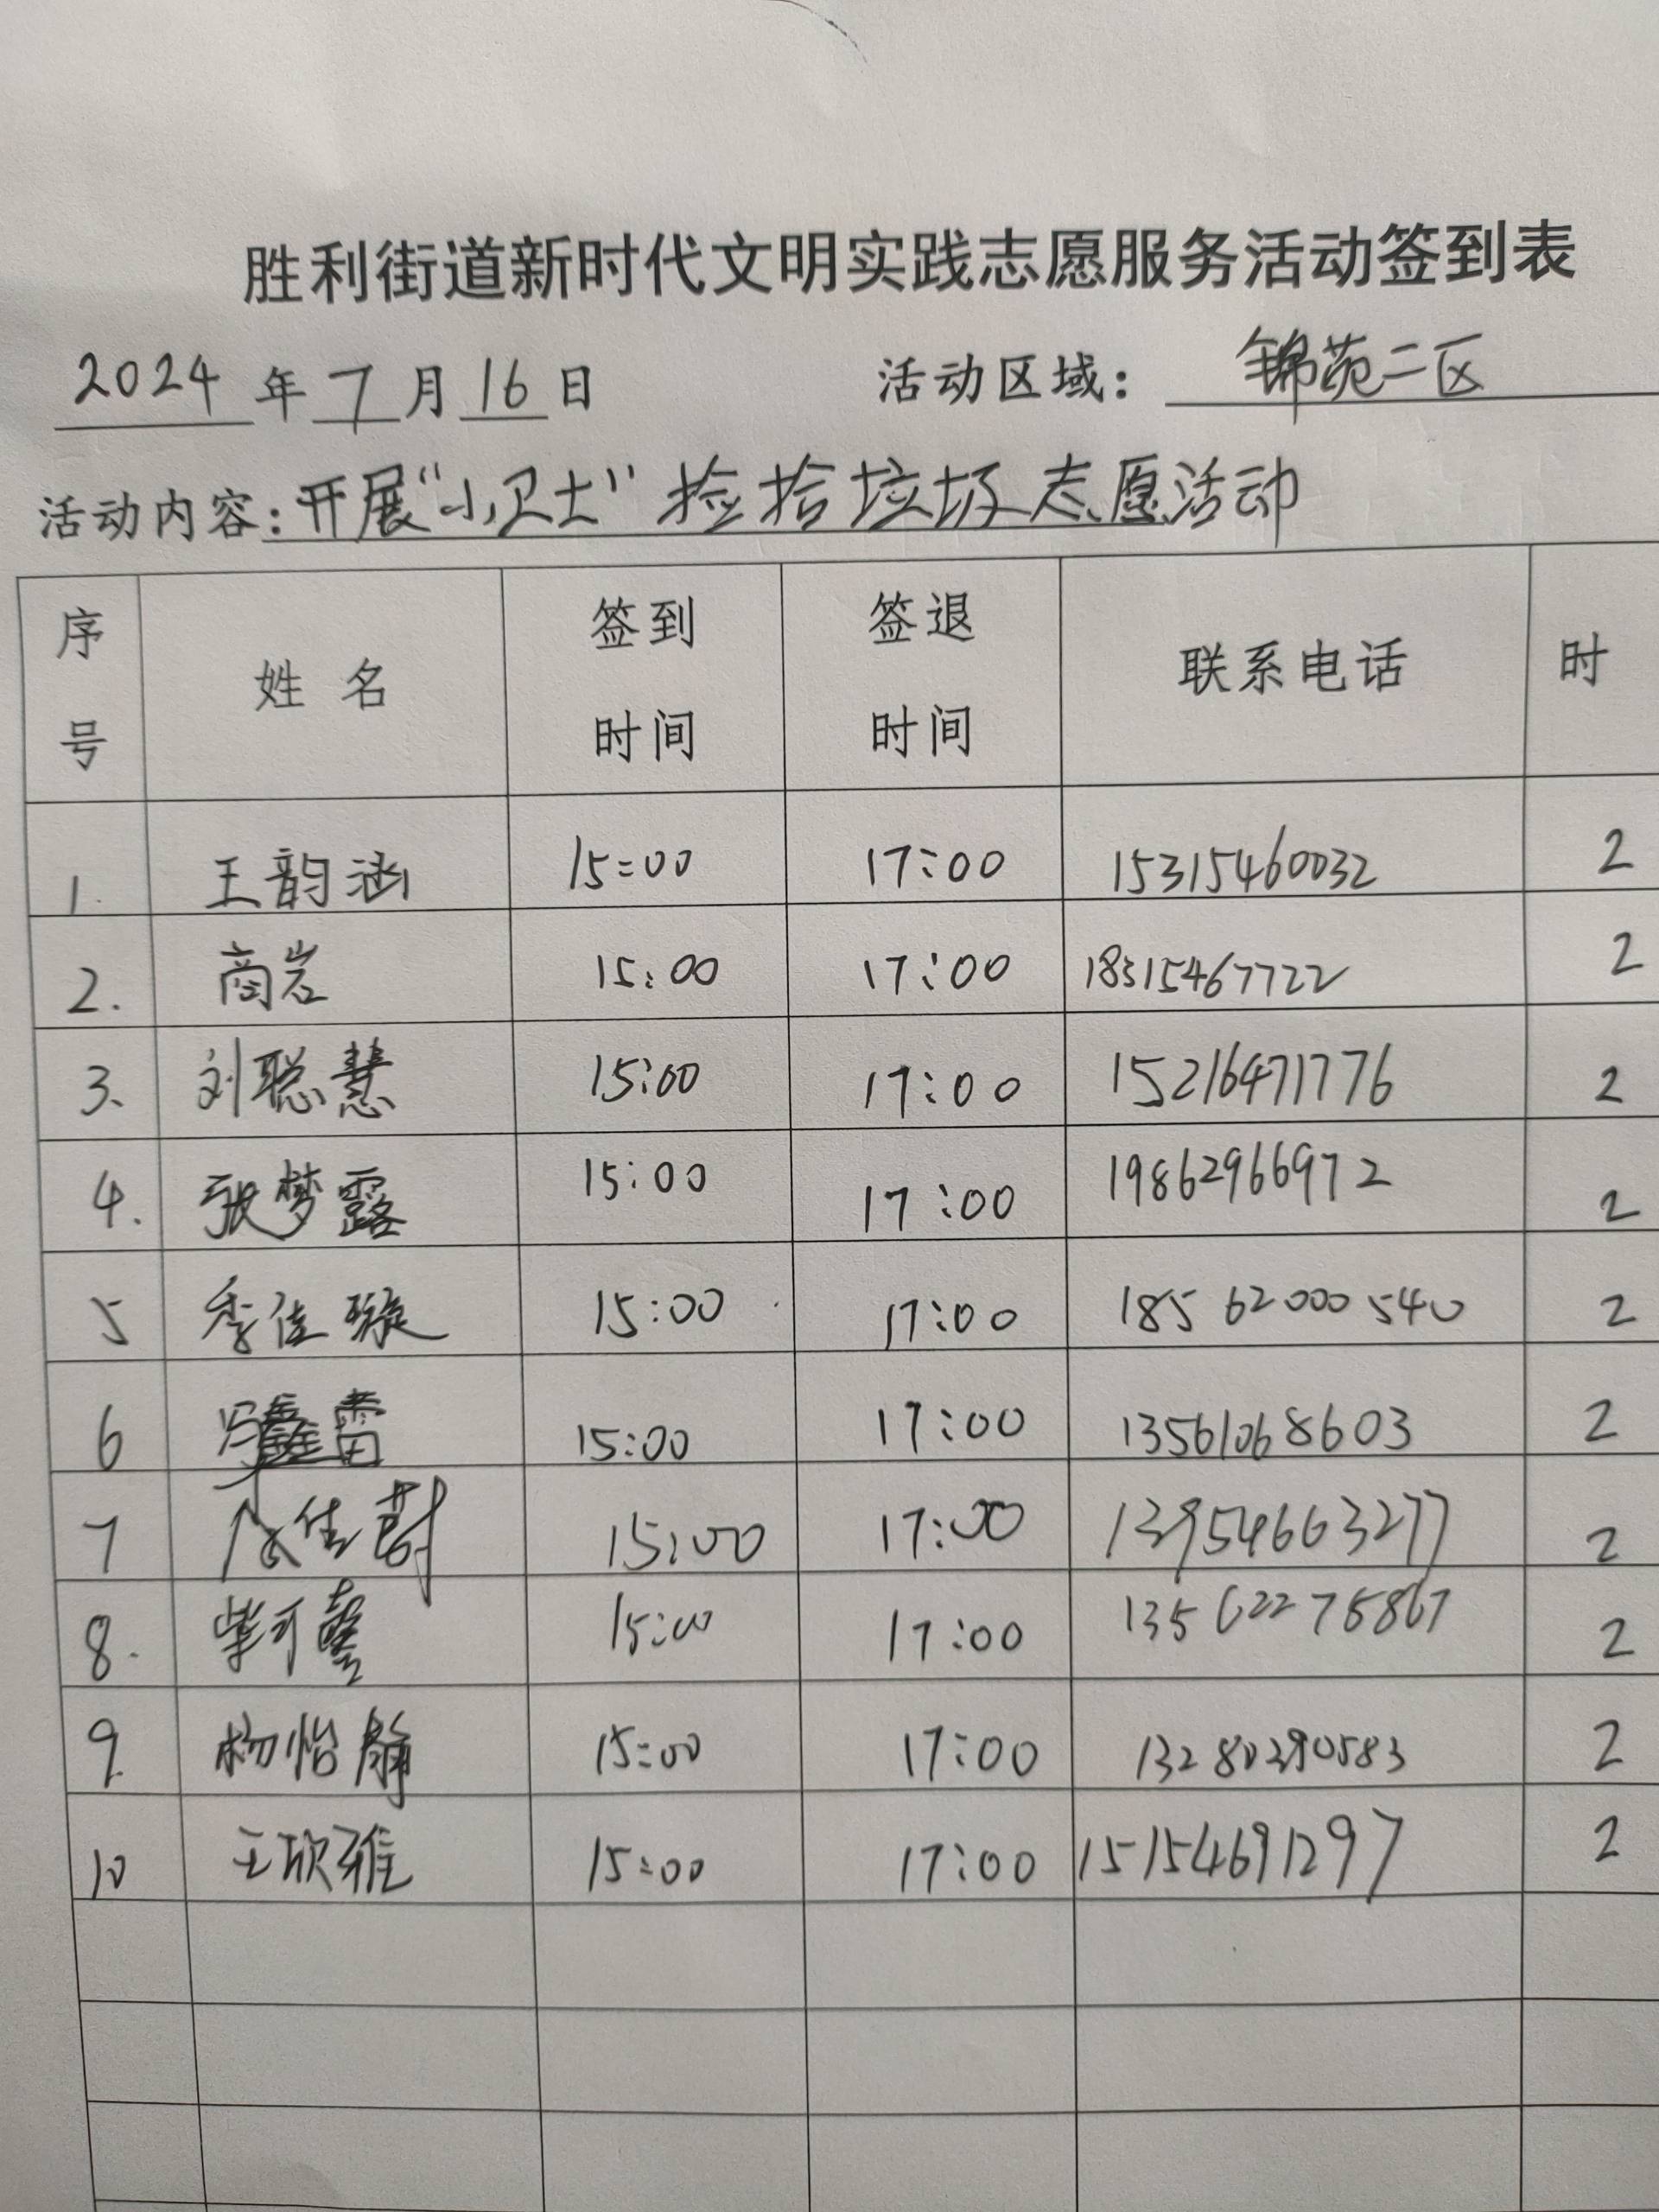 胜利街道新时代文明实践志愿服务活动签到表
2024 年 7 月 16 日 活动区域: 锦苑二区
活动内容:开展“小卫士”捡拾垃圾志愿活动
序号 姓名 签到时间 签退时间 联系电话 时
1. 王韵涵 15:00 17:00 15315460032 2
2. 商岩 15:00 17:00 18315467722 2
3、 刘聪慧 15:00 17:00 15216471776 2
4. 张梦露 15:00 17:00 19862966972 2
5 季佳璇 15:00 17:00 18562000540 2
6 15:00 17:00 13561068603 2
7 15:00 17:00 13954663277 2
8. 15:00 17:00 2
9. 杨怡静 15:00 17:00 13280290583 2
10 王欣雅 15:00 17:00 15154691297 2